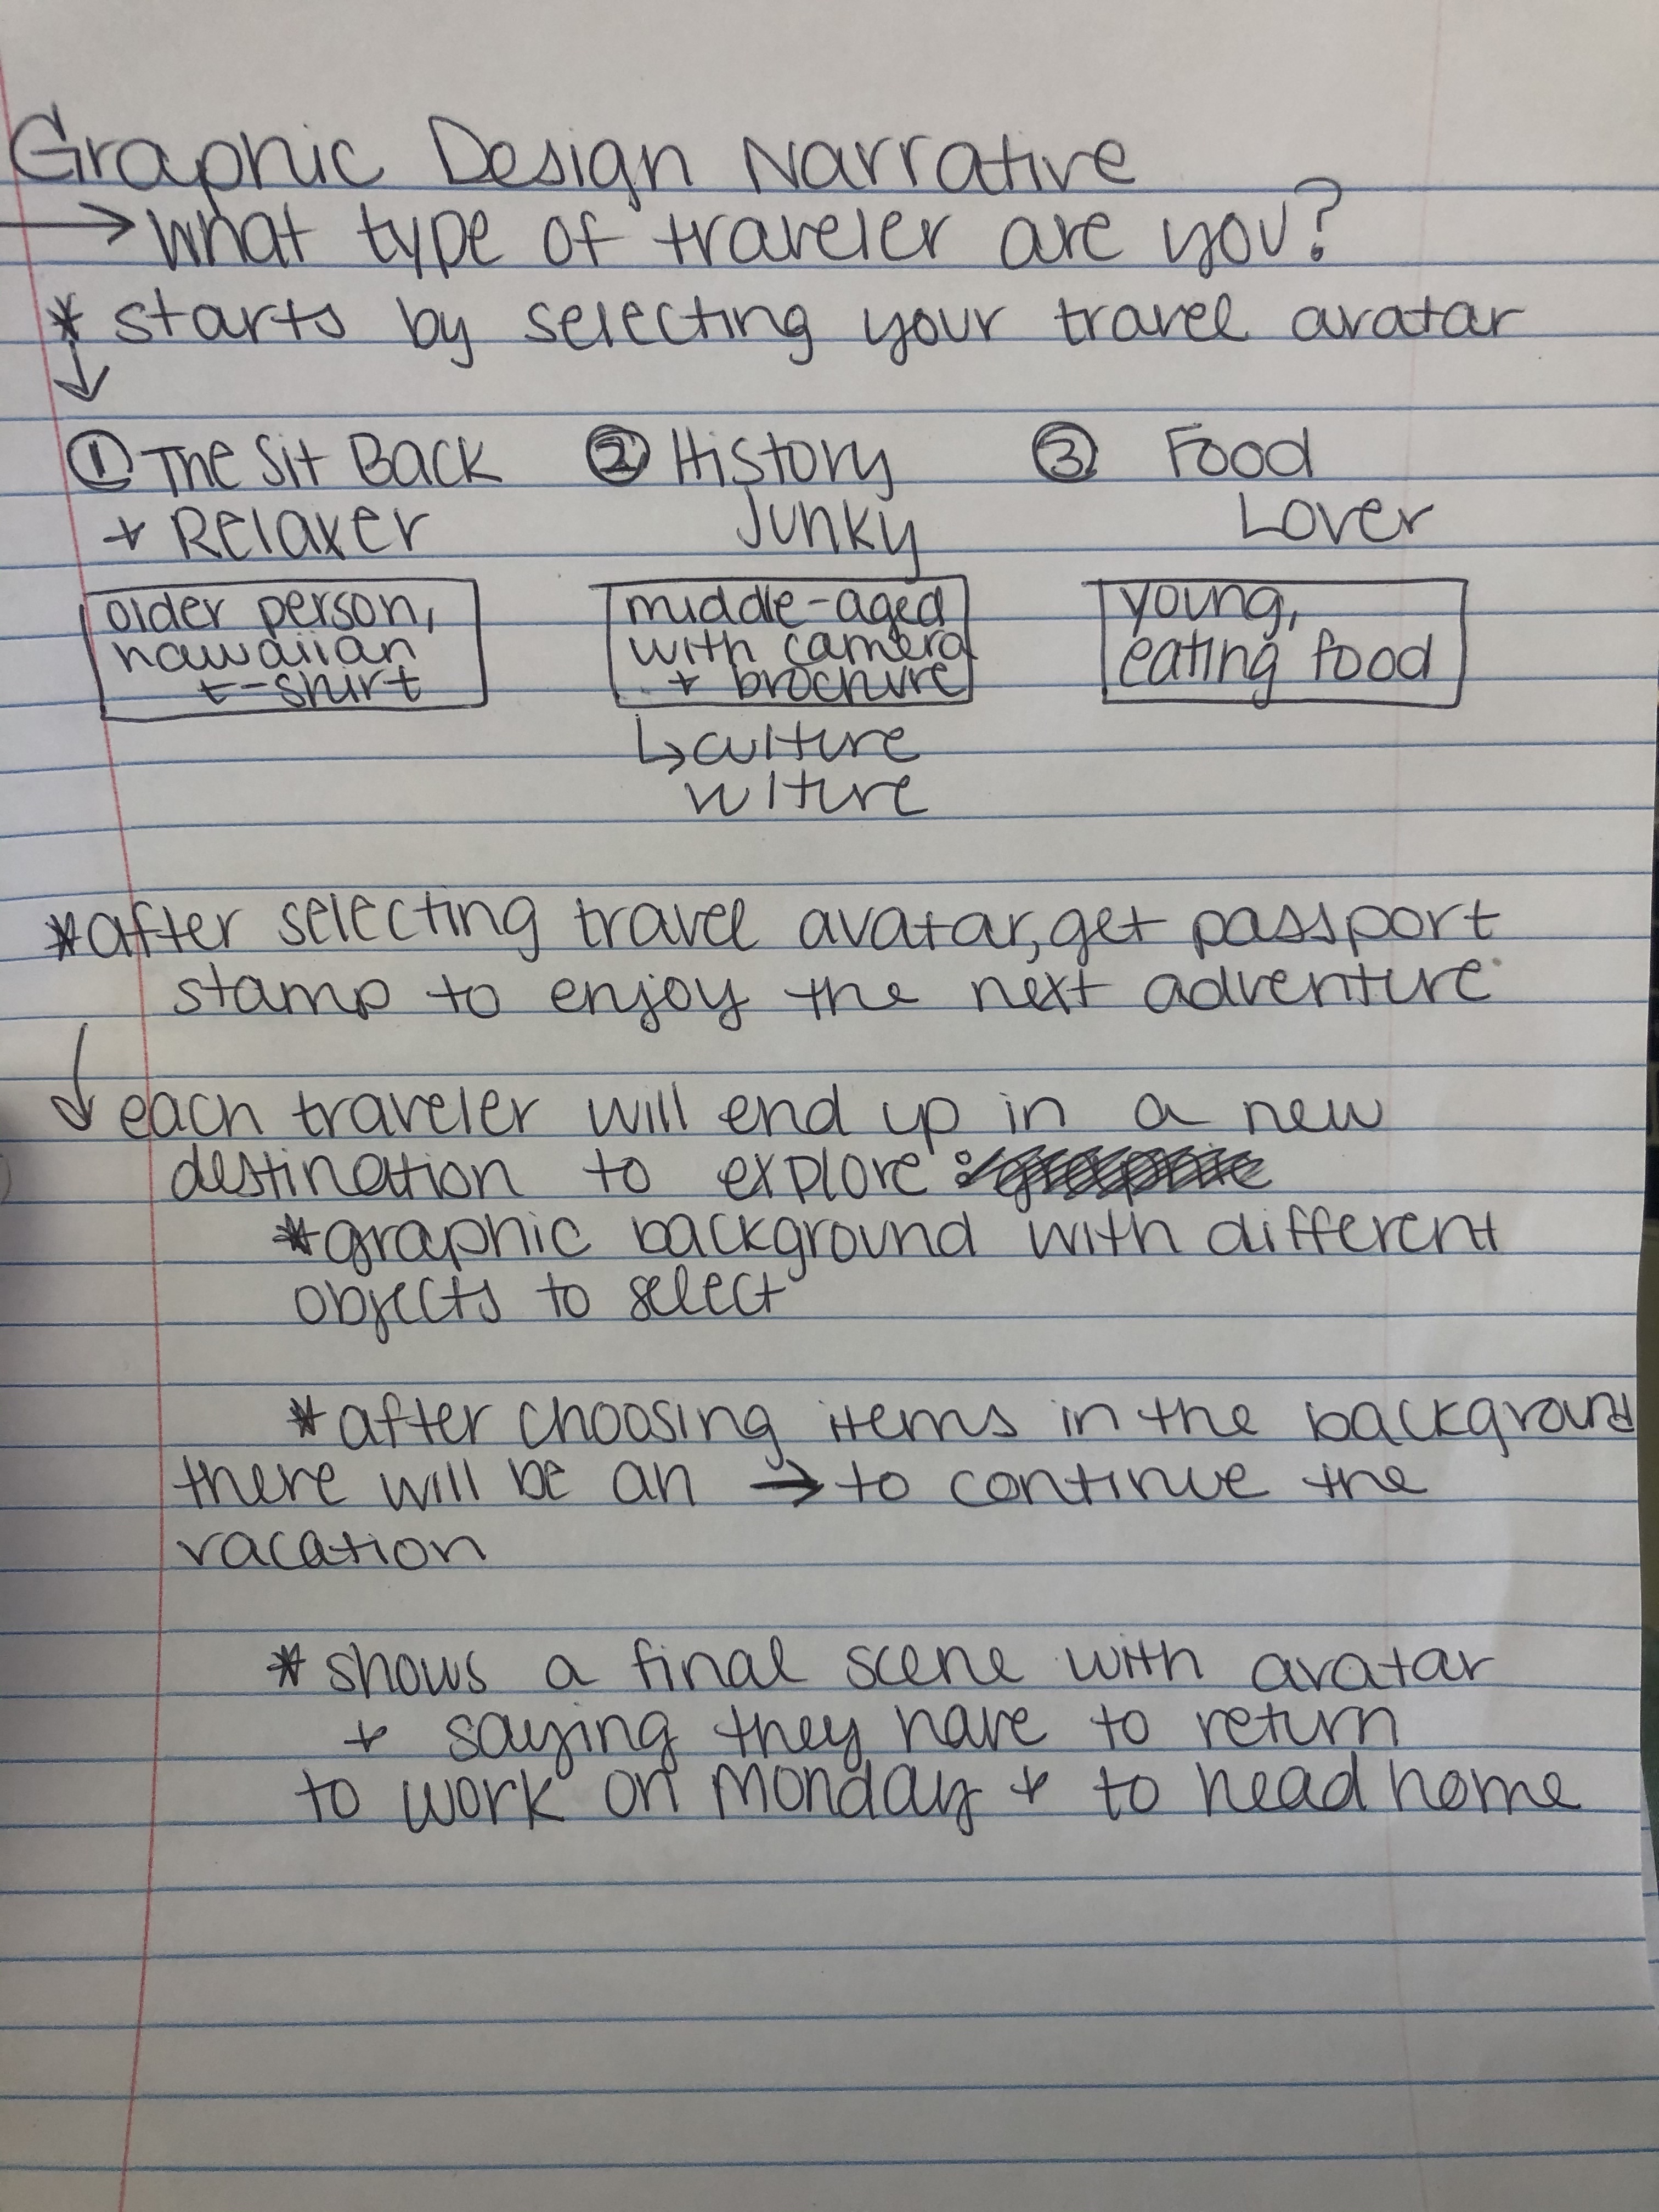 Graphic Design Narrative
→ What type of traveler are you?
* starts by selecting your travel avatar
↓
① The Sit Back ② History ③ Food
+ Relaxer Junky Lover
older person, middle-aged young,
hawaiian with camera eating food
t-shirt + brochure
↳ culture
vulture
*after selecting travel avatar, get passport
stamp to enjoy the next adventure
↓ each traveler will end up in a new
destination to explore:
*graphic background with different
objects to select
*after choosing items in the background
there will be an → to continue the
vacation
*shows a final scene with avatar
+ saying they have to return
to work on Monday + to head home